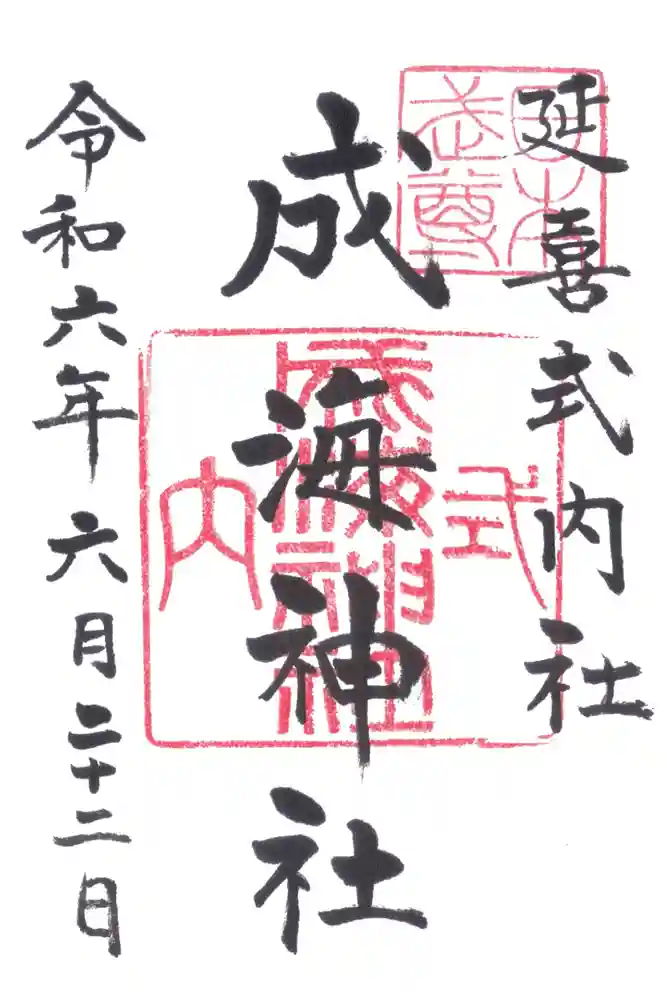 延喜式内社
日本武尊
成海神社
式内
成海神社
令和六年六月二十二日